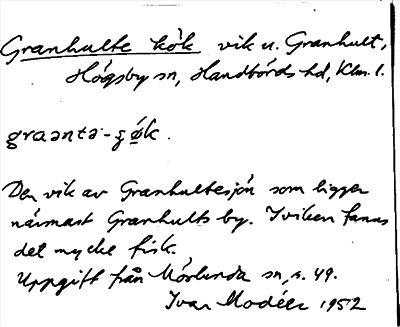 Granhulte kök vik u. Granhult,
Högsby sn, Handbörds hd, Klm. l.
graəntə-ʂøk.
Den vik av Granhultesjön som ligger
närmast Granhults by. I viken fanns
det mycke fisk.
Uppgift från Mörlunda sn, s. 49.
Ivar Modéer 1952